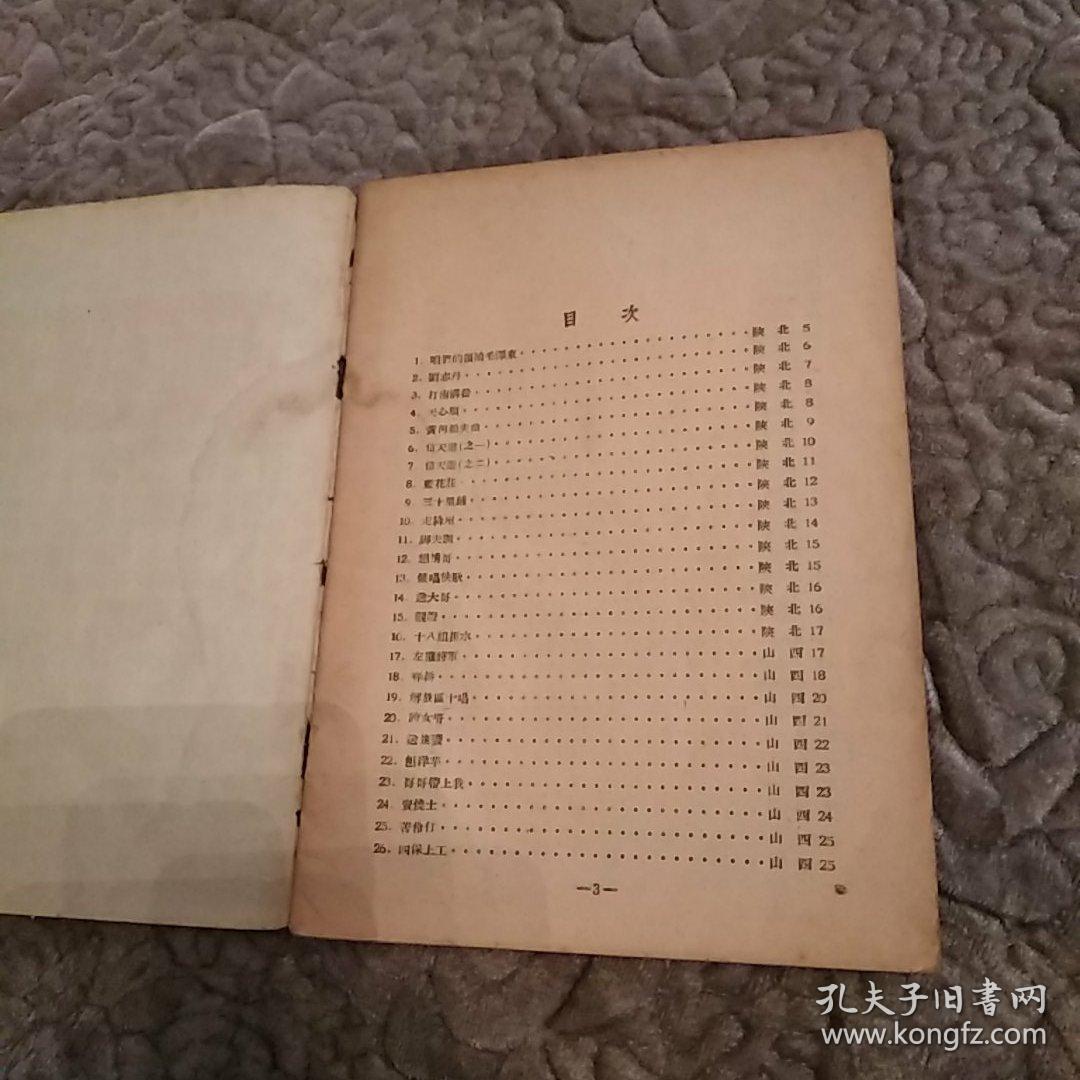 目 次
1. 咱們的領袖毛澤東 陝北 5
2. 劉志丹 陝北 6
3. 打南溝岔 陝北 7
4. 天心順 陝北 8
5. 黃河船夫曲 陝北 8
6. 信天遊(之一) 陝北 9
7. 信天遊(之二) 陝北 10
8. 藍花花 陝北 11
9. 三十里鋪 陝北 12
10. 走絳州 陝北 13
11. 脚夫調 陝北 14
12. 陝北 15
13. 陝北 15
14. 送大哥 陝北 16
15. 陝北 16
16. 陝北 17
17. 左權將軍 山西 17
18. 山西 18
19. 解放區十唱 山西 20
20. 山西 21
21. 山西 22
22. 刨洋芋 山西 23
23. 哥哥帶上我 山西 23
24. 山西 24
25. 苦伶仃 山西 25
26. 四保上工 山西 25
—3—
孔夫子旧書网
www.kongfz.com